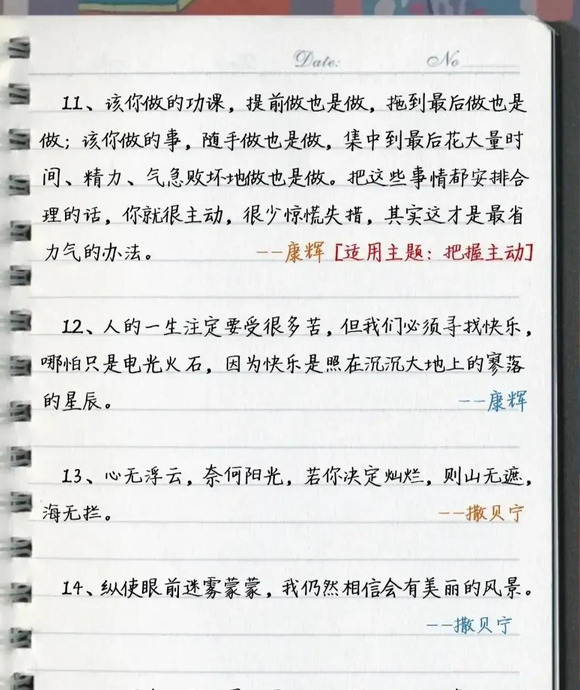 Date:
No
11、该你做的功课，提前做也是做，拖到最后做也是
做；该你做的事，随手做也是做，集中到最后花大量时
间、精力、气急败坏地做也是做。把这些事情都安排合
理的话，你就很主动，很少惊慌失措，其实这才是最省
力气的办法。 --康辉 [适用主题：把握主动]
12、人的一生注定要受很多苦，但我们必须寻找快乐，
哪怕只是电光火石，因为快乐是照在沉沉大地上的寥落
的星辰。 --康辉
13、心无浮云，奈何阳光，若你决定灿烂，则山无遮，
海无拦。 --撒贝宁
14、纵使眼前迷雾蒙蒙，我仍然相信会有美丽的风景。
--撒贝宁